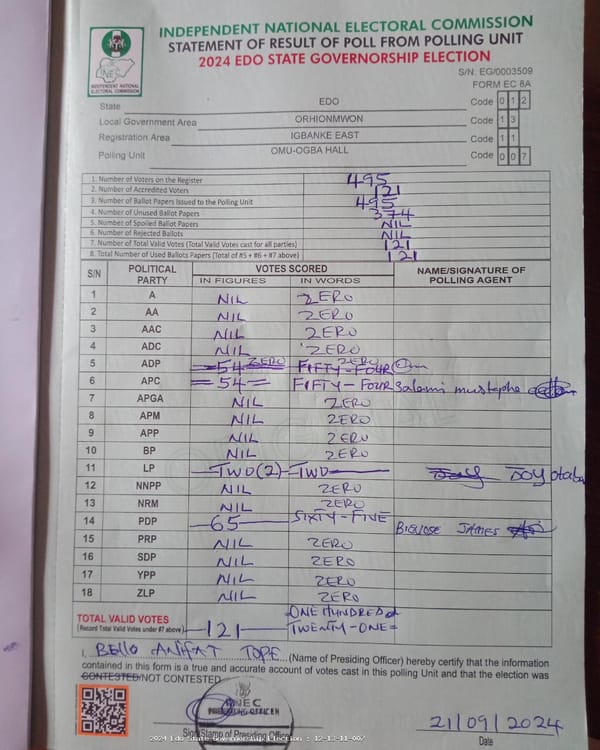 INDEPENDENT NATIONAL ELECTORAL COMMISSION
STATEMENT OF RESULT OF POLL FROM POLLING UNIT
2024 EDO STATE GOVERNORSHIP ELECTION
INEC
INDEPENDENT NATIONAL
ELECTORAL COMMISSION
S/N. EG/0003509
FORM EC 8A
State EDO Code 0 1 2
Local Government Area ORHIONMWON Code 1 3
Registration Area IGBANKE EAST Code 1 1
Polling Unit OMU-OGBA HALL Code 0 0 7
1. Number of Voters on the Register 495
2. Number of Accredited Voters 121
3. Number of Ballot Papers Issued to the Polling Unit 495
4. Number of Unused Ballot Papers 374
5. Number of Spoiled Ballot Papers NIL
6. Number of Rejected Ballots NIL
7. Number of Total Valid Votes (Total Valid Votes cast for all parties) 121
8. Total Number of Used Ballots Papers (Total of #5 + #6 + #7 above) 121
S/N POLITICAL PARTY VOTES SCORED NAME/SIGNATURE OF POLLING AGENT
IN FIGURES IN WORDS
1 A NIL ZERO
2 AA NIL ZERO
3 AAC NIL ZERO
4 ADC NIL ZERO
5 ADP 54 ZERO FIFTY-FOUR ZERO
6 APC =54= FIFTY-FOUR Salami mustapha
7 APGA NIL ZERO
8 APM NIL ZERO
9 APP NIL ZERO
10 BP NIL ZERO
11 LP TWO(2) TWO JOY
12 NNPP NIL ZERO
13 NRM NIL ZERO
14 PDP 65 SIXTY-FIVE JAMES
15 PRP NIL ZERO
16 SDP NIL ZERO
17 YPP NIL ZERO
18 ZLP NIL ZERO
TOTAL VALID VOTES
(Record Total Valid Votes under #7 above) 121 ONE HUNDRED &
TWENTY-ONE=
I, BELLO TOPE (Name of Presiding Officer) hereby certify that the information
contained in this form is a true and accurate account of votes cast in this polling Unit and that the election was
CONTESTED/NOT CONTESTED
INEC
PRESIDING OFFICER
Sign/Stamp of Presiding Officer
21/09/2024
Date
2024 Edo State Governorship Election : 12-13-11-007